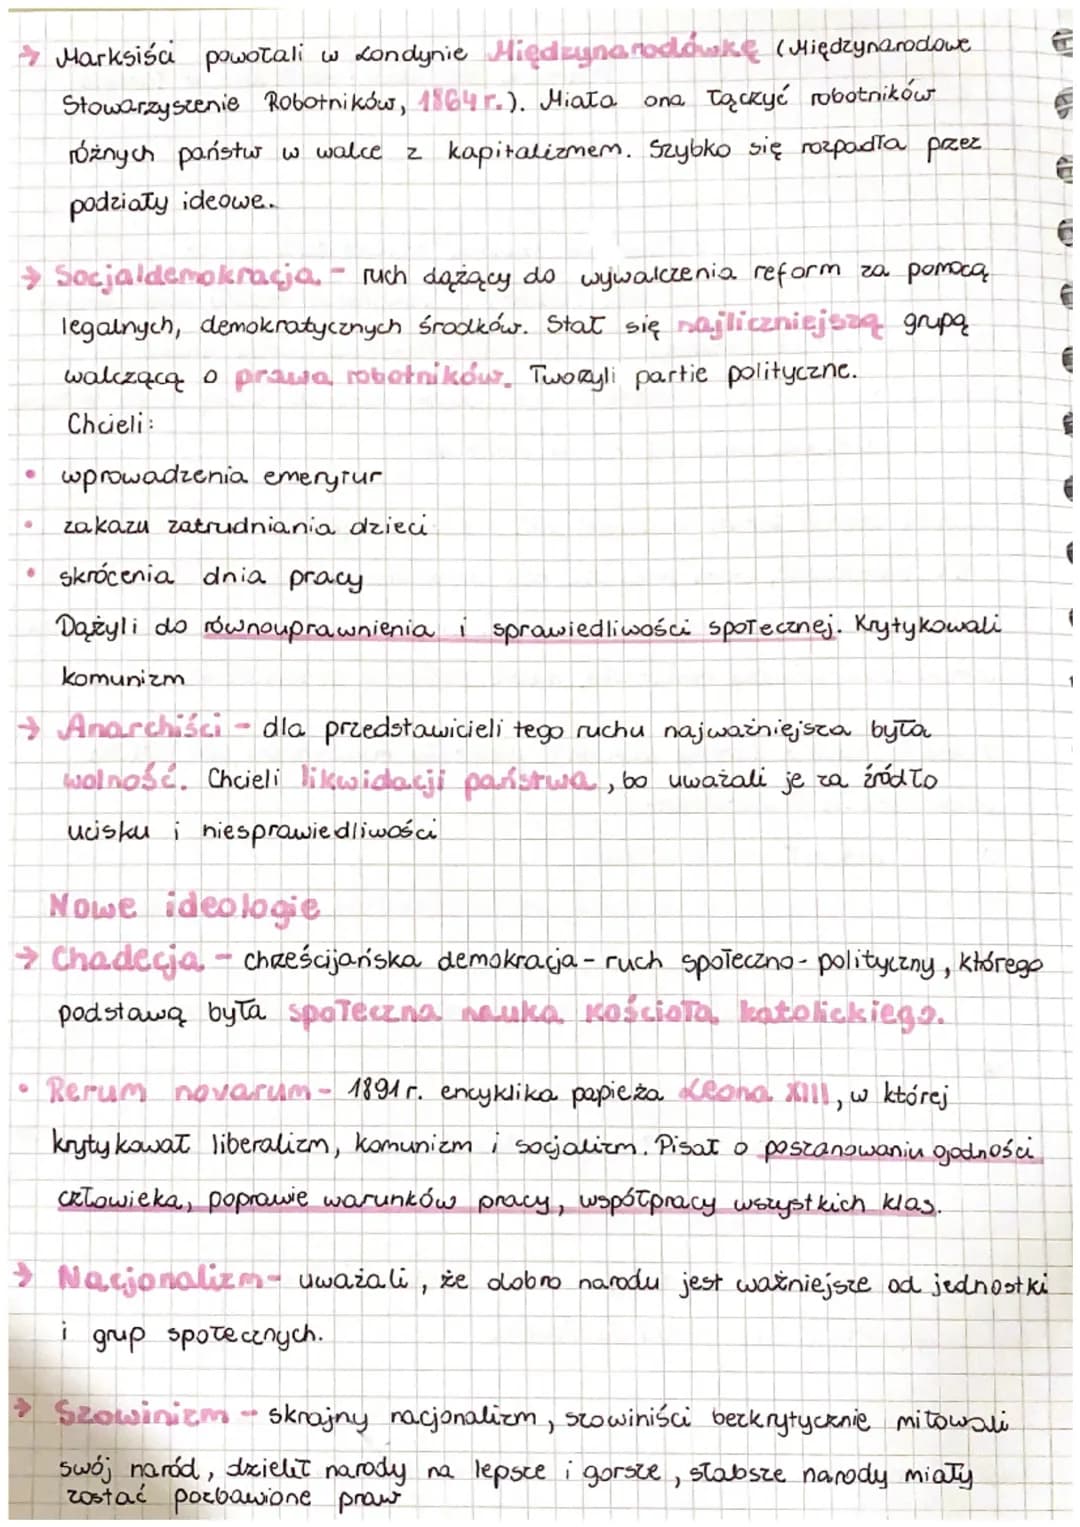 → Marksiści powołali w Londynie Międzynarodówkę (Międzynarodowe
Stowarzyszenie Robotników, 1864 r.). Miała ona łączyć robotników
różnych państw w walce z kapitalizmem. Szybko się rozpadła przez
podziały ideowe.
→ Socjaldemokracja - ruch dążący do wywalczenia reform za pomocą
legalnych, demokratycznych środków. Stał się najliczniejszą grupą
walczącą o prawa robotników. Tworzyli partie polityczne.
Chcieli:
• wprowadzenia emerytur
• zakazu zatrudniania dzieci
• skrócenia dnia pracy
Dążyli do równouprawnienia i sprawiedliwości społecznej. Krytykowali
komunizm
→ Anarchiści - dla przedstawicieli tego ruchu najważniejsza była
wolność. Chcieli likwidacji państwa, bo uważali je za źródło
ucisku i niesprawiedliwości
Nowe ideologie
→ Chadecja - chrześcijańska demokracja - ruch społeczno-polityczny, którego
podstawą była społeczna nauka kościoła katolickiego.
• Rerum novarum - 1891 r. encyklika papieża Leona XIII, w której
krytykował liberalizm, komunizm i socjalizm. Pisał o poszanowaniu godności
człowieka, poprawie warunków pracy, współpracy wszystkich klas.
→ Nacjonalizm - uważali, że dobro narodu jest ważniejsze od jednostki
i grup społecznych.
→ Szowinizm - skrajny nacjonalizm, szowiniści bezkrytycznie miłowali
swój naród, dzielił narody na lepsze i gorsze, słabsze narody miały
zostać pozbawione praw